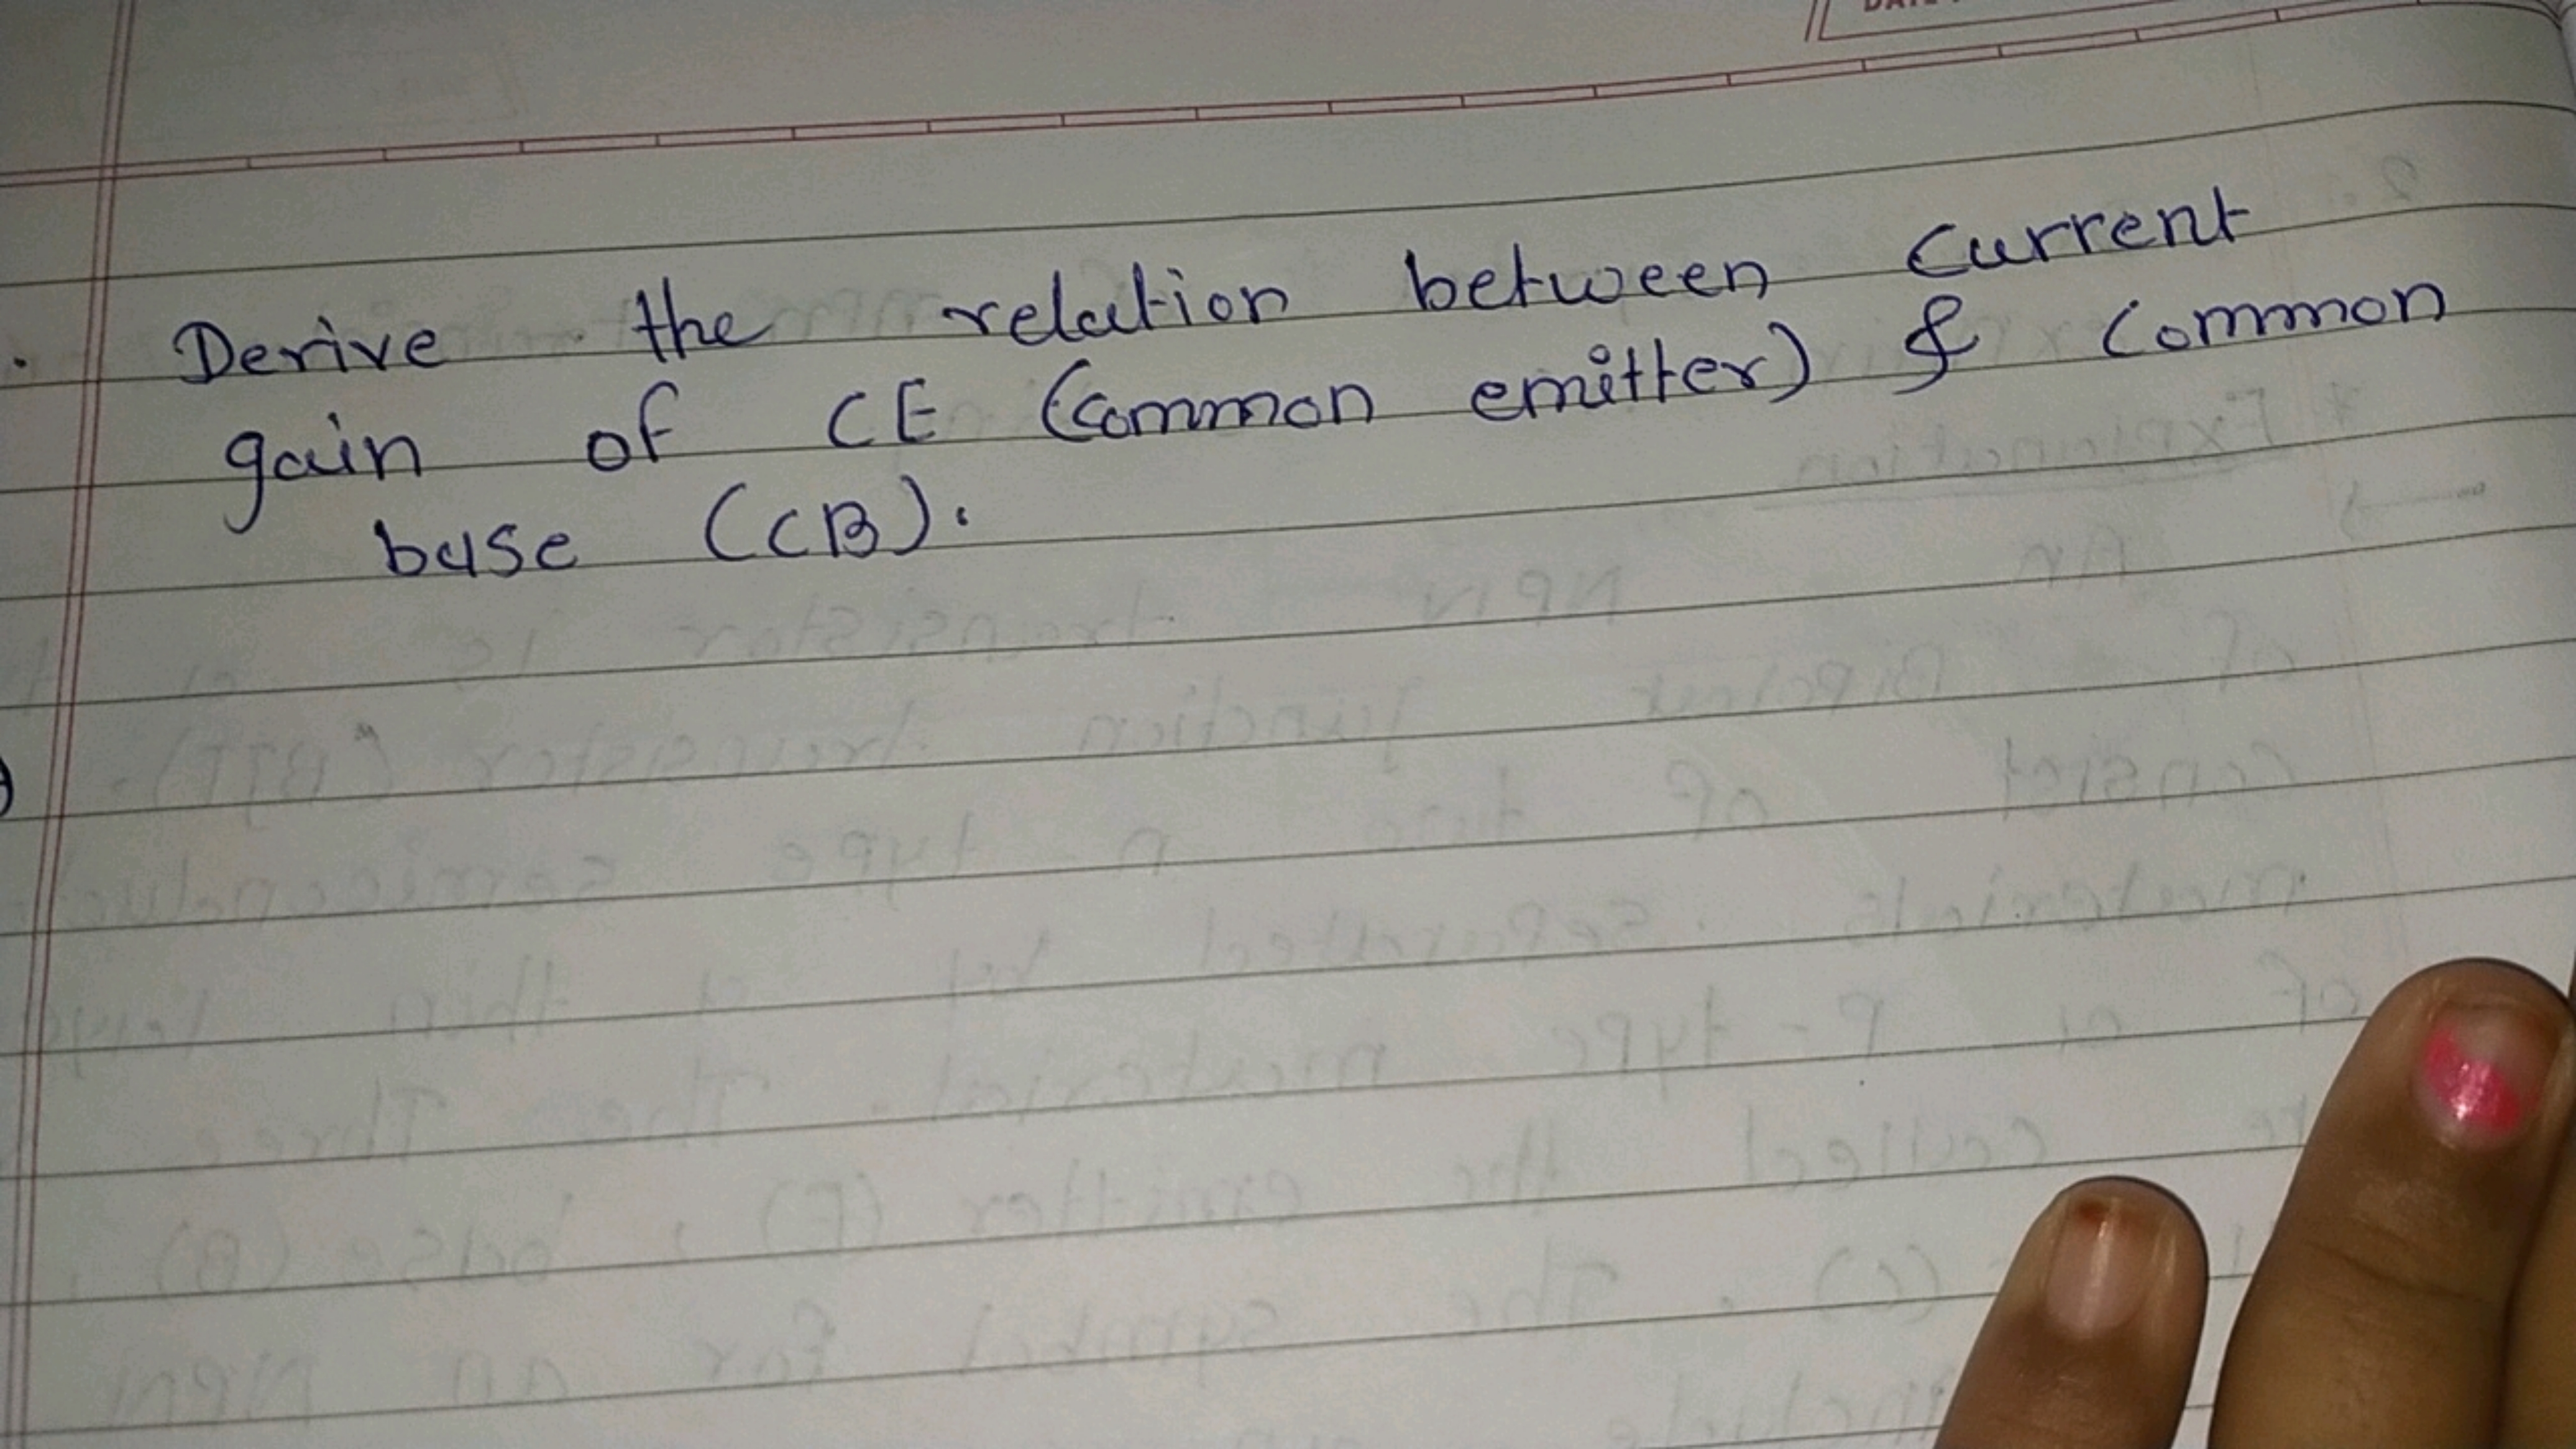 Derive the relation between current
gain of CE (Common emitter) & Common
base (CB).